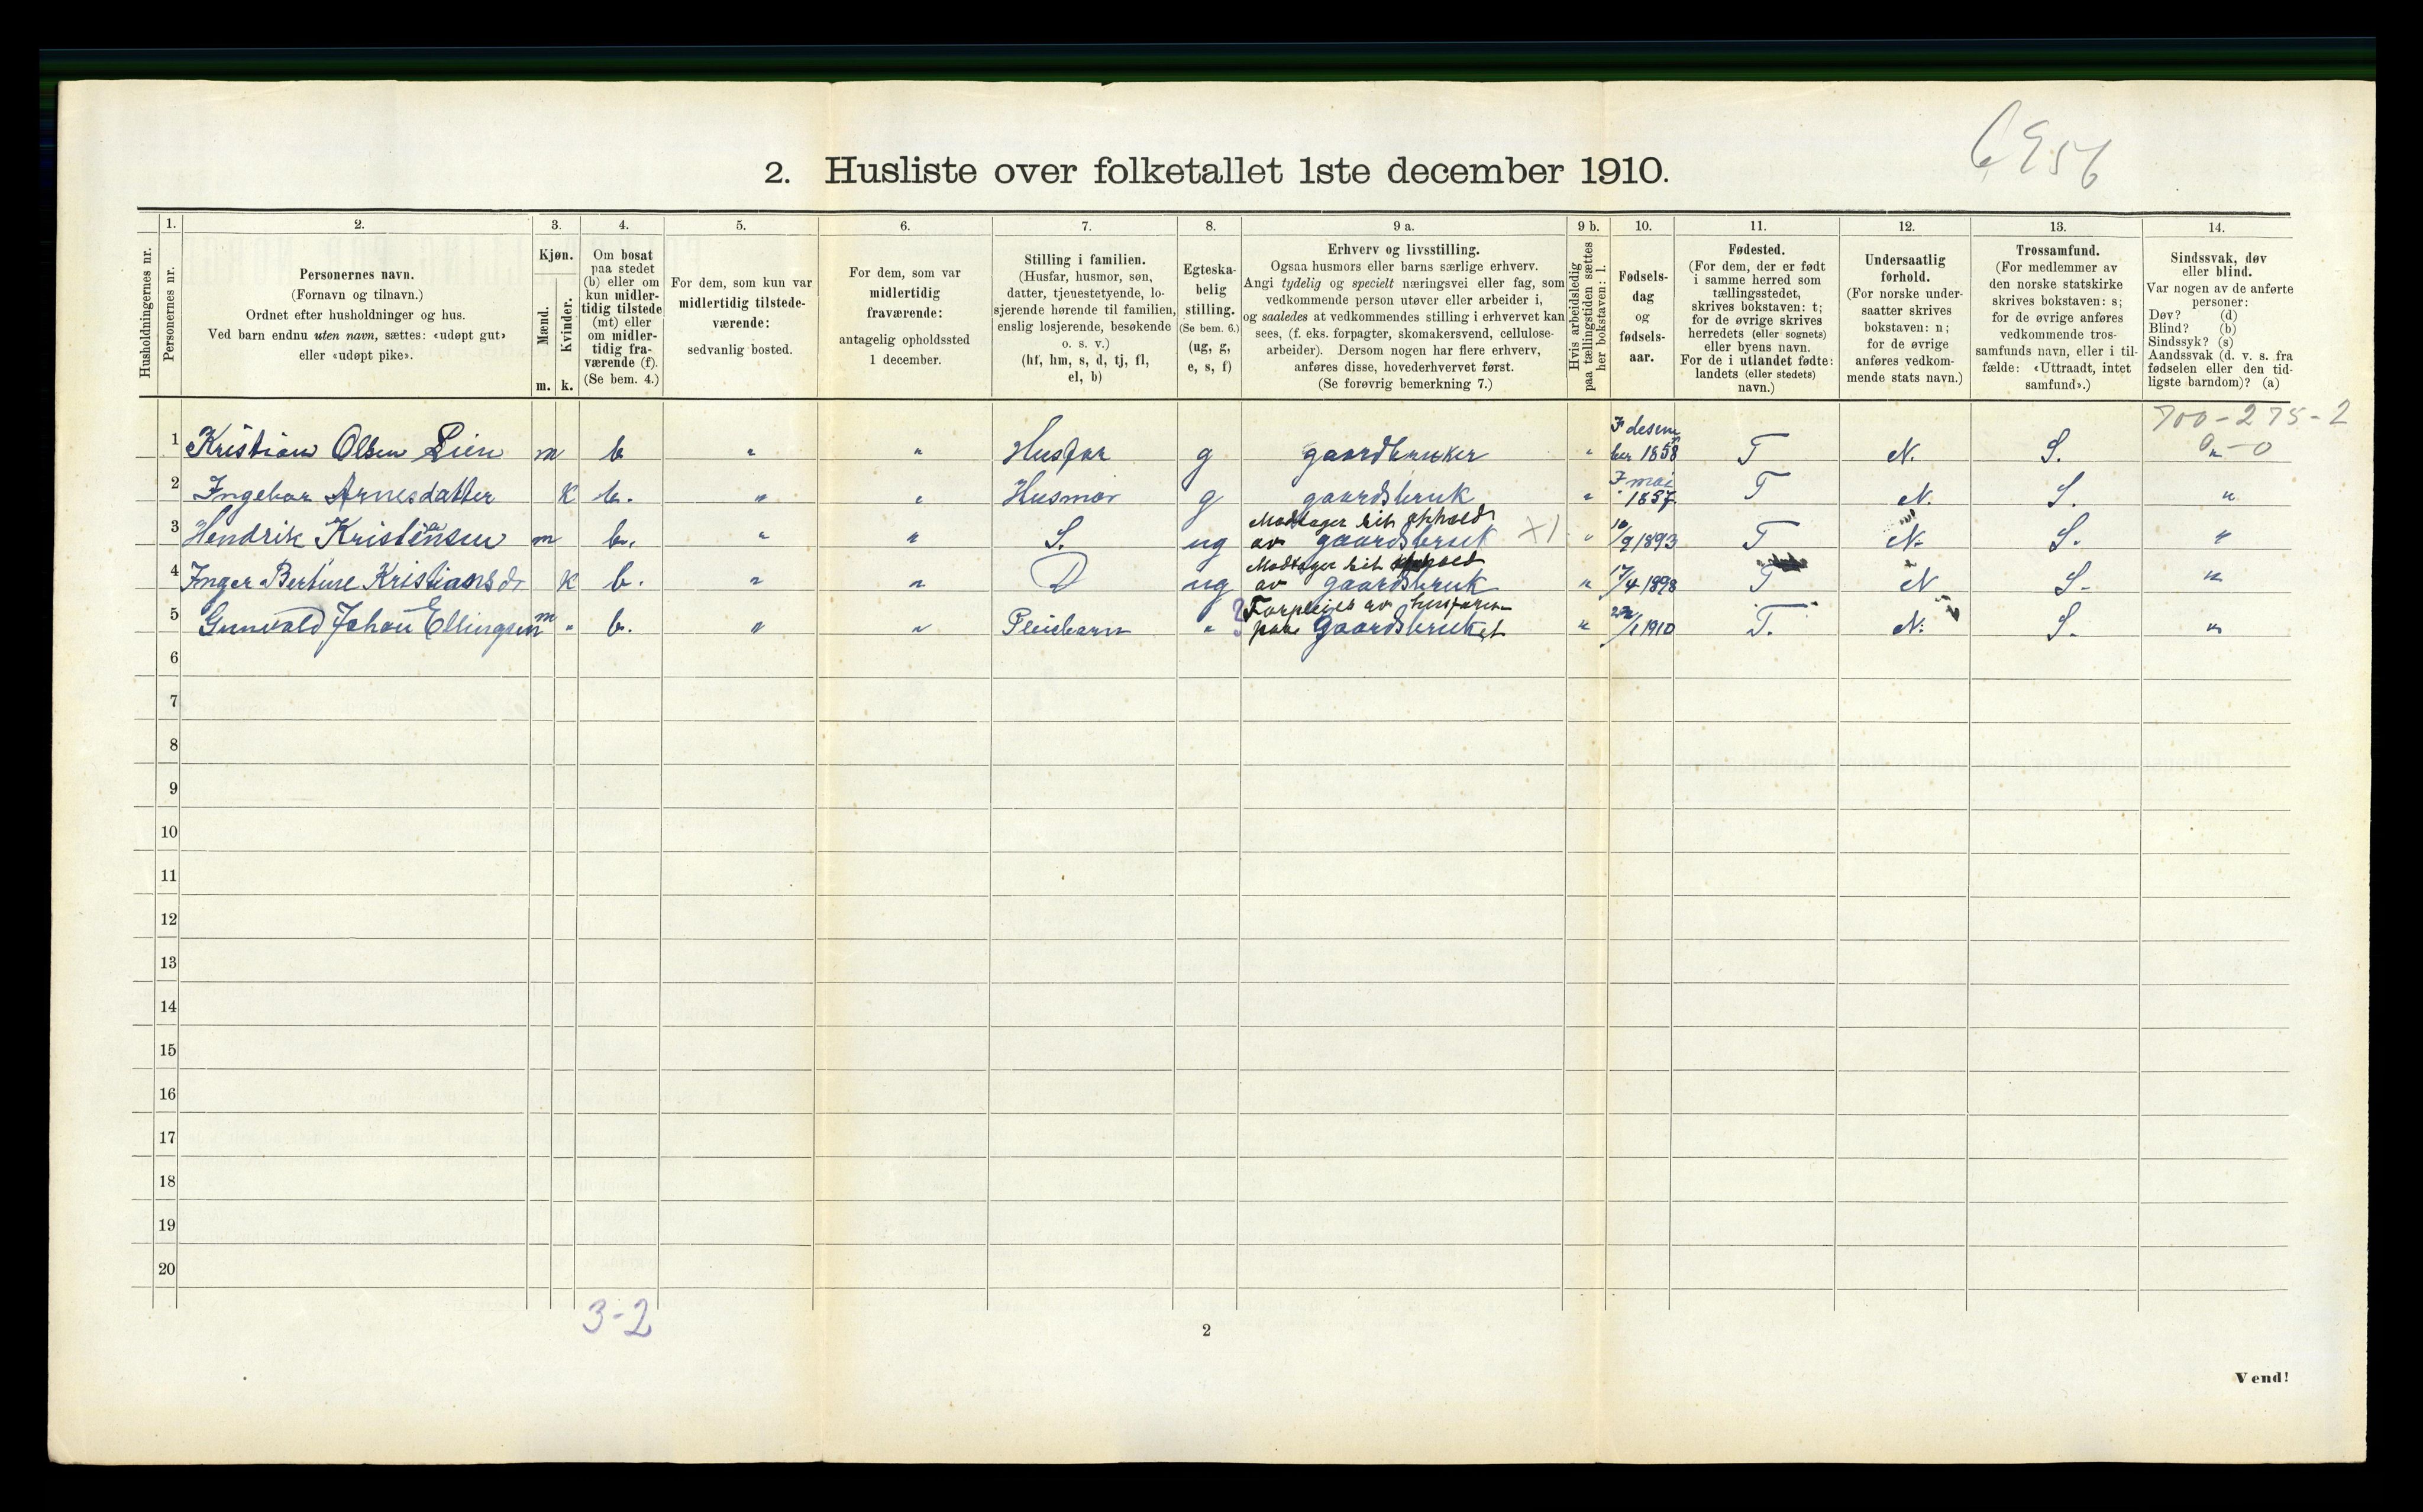 6956
2. Husliste over folketallet 1ste december 1910.
Husholdningernes nr.
1.
Personernes nr.
2.
Personernes navn.
(Fornavn og tilnavn.)
Ordnet efter husholdninger og hus.
Ved barn endnu uten navn, sættes: «udøpt gut»
eller «udøpt pike».
3.
Kjøn.
Mænd.
Kvinder.
m. k.
4.
Om bosat
paa stedet
(b) eller om
kun midler-
tidig tilstede
(mt) eller
om midler-
tidig fra-
værende (f).
(Se bem. 4.)
5.
For dem, som kun var
midlertidig tilstede-
værende:
sedvanlig bosted.
6.
For dem, som var
midlertidig
fraværende:
antagelig opholdssted
1 december.
7.
Stilling i familien.
(Husfar, husmor, søn,
datter, tjenestetyende, lo-
sjerende hørende til familien,
enslig losjerende, besøkende
o. s. v.)
(hf, hm, s, d, tj, fl,
el, b)
8.
Egteska-
belig
stilling.
(Se bem. 6.)
(ug, g,
e, s, f)
9 a.
Erhverv og livsstilling.
Ogsaa husmors eller barns særlige erhverv.
Angi tydelig og specielt næringsvei eller fag, som
vedkommende person utøver eller arbeider i,
og saaledes at vedkommendes stilling i erhvervet kan
sees, (f. eks. forpagter, skomakersvend, cellulose-
arbeider). Dersom nogen har flere erhverv,
anføres disse, hovederhvervet først.
(Se forøvrig bemerkning 7.)
9 b.
Hvis arbeidsledig
paa tællingstiden sættes
her bokstaven: l.
10.
Fødsels-
dag
og
fødsels-
aar.
11.
Fødested.
(For dem, der er født
i samme herred som
tællingsstedet,
skrives bokstaven: t;
for de øvrige skrives
herredets (eller sognets)
eller byens navn.
For de i utlandet fødte:
landets (eller stedets)
navn.)
12.
Undersaatlig
forhold.
(For norske under-
saatter skrives
bokstaven: n;
for de øvrige
anføres vedkom-
mende stats navn.)
13.
Trossamfund.
(For medlemmer av
den norske statskirke
skrives bokstaven: s;
for de øvrige anføres
vedkommende tros-
samfunds navn, eller i til-
fælde: «Uttraadt, intet
samfund».)
14.
Sindssvak, døv
eller blind.
Var nogen av de anførte
personer:
Døv? (d)
Blind? (b)
Sindssyk? (s)
Aandssvak (d. v. s. fra
fødselen eller den tid-
ligste barndom)? (a)
700-275-2
0-0
1 Kristian Olsen Lien m b " " Husfar g gaardbruker " 7 desem
ber 1858 T N. S. "
2 Ingebor Arnesdatter K b. " " Husmor g gaardsbruk " 7 mai
1837 T N. S. "
3 Hendrik Kristensen m b. " " S. ug Modtager sit ophold
av gaardsbruk X1 " 10/9 1893 T N. S. "
4 Inger Bertine Kristiansdr K b. " " D ug Modtager sit ophold
av gaardsbruk " 17/4 1898 T N S. "
5 Gunvald Johan Ellingsen m " b. " " Pleiebarn " ? Forpleies av husfaren
paa gaardsbruket " 22/1 1910 T. N. S. "
6
7
8
9
10
11
12
13
14
15
16
17
18
19
20
3-2
2
Vend!